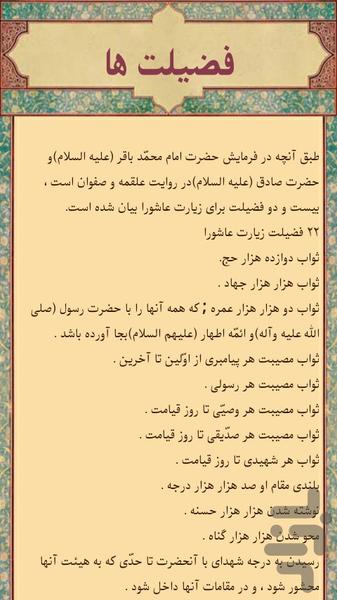 فضیلت ها
طبق آنچه در فرمایش حضرت امام محمّد باقر (علیه السلام)و
حضرت صادق (علیه السلام)در روایت علقمه و صفوان است ،
بیست و دو فضیلت برای زیارت عاشورا بیان شده است.
۲۲ فضیلت زیارت عاشورا
ثواب دوازده هزار حج.
ثواب هزار هزار جهاد .
ثواب دو هزار هزار عمره ; که همه آنها را با حضرت رسول (صلی
الله علیه وآله)و ائمّه اطهار (علیهم السلام)بجا آورده باشد .
ثواب مصیبت هر پیامبری از اوّلین تا آخرین .
ثواب مصیبت هر رسولی .
ثواب مصیبت هر وصیّی تا روز قیامت .
ثواب مصیبت هر صدّیقی تا روز قیامت .
ثواب هر شهیدی تا روز قیامت .
بلندی مقام او صد هزار هزار درجه .
نوشته شدن هزار هزار حسنه .
محو شدن هزار هزار گناه .
رسیدن به درجه شهدای با آنحضرت تا حدّی که به هیئت آنها
محشور شود ، و در مقامات آنها داخل شود .
بازار